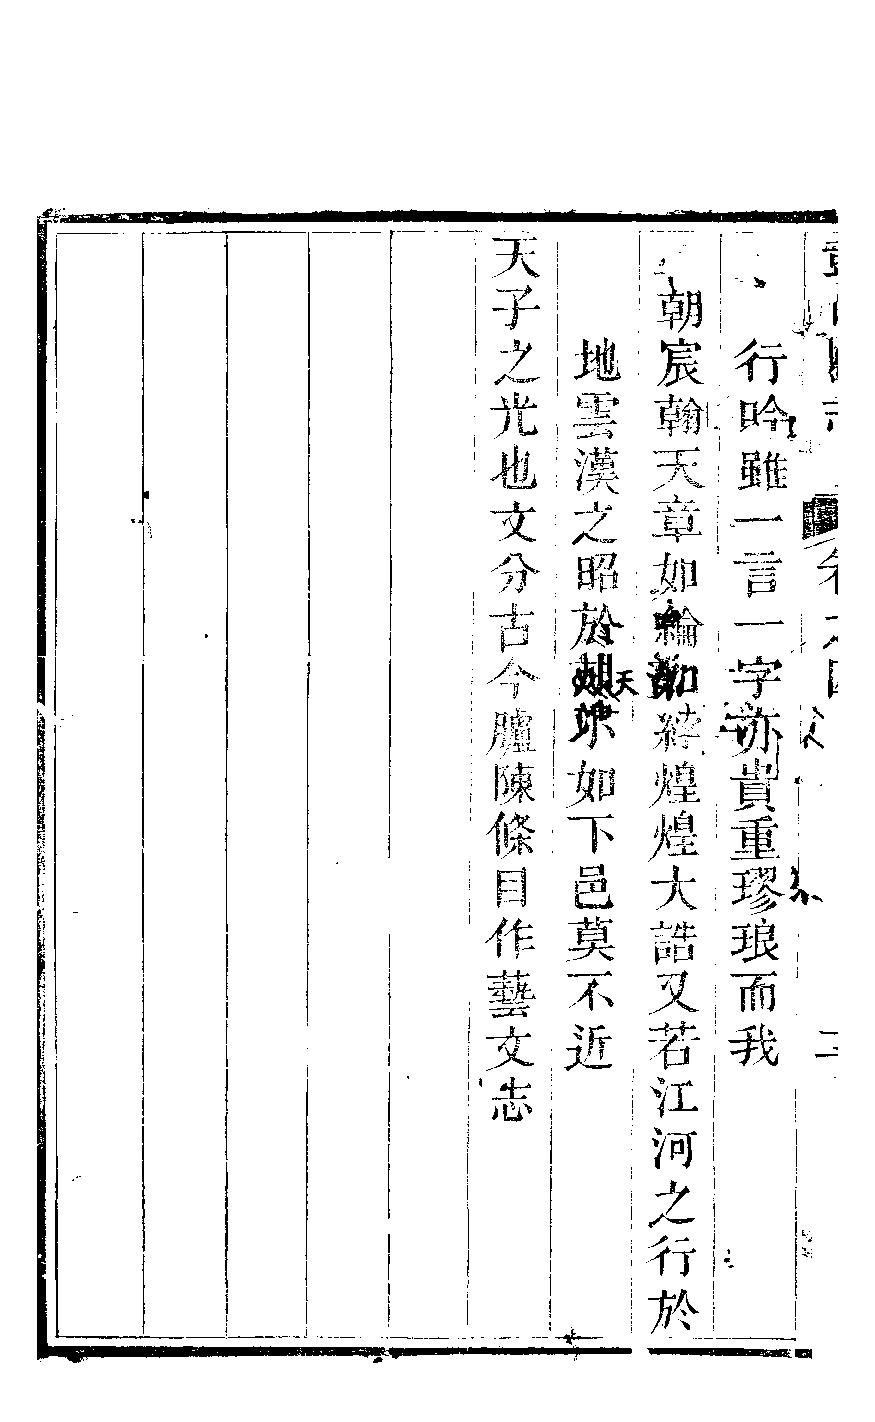 行吟雖一言一字亦貴重璆琅而我
朝宸翰天章如綸如綍煌煌大誥又若江河之行於
地雲漢之昭於天如下邑莫不近
天子之光也文分古今臚陳條目作藝文志